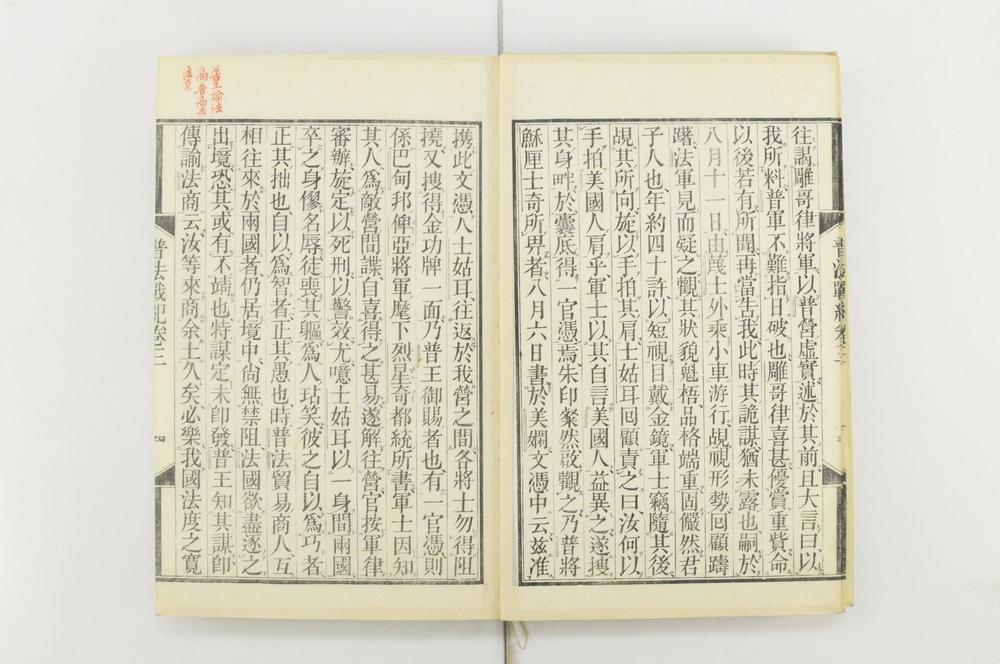 往謁雕哥律將軍以普營虛實述於其前且大言曰以
我所料普軍不難指日破也雕哥律喜甚優賞重貲命
以後若有所聞再當告我此時其詭謀猶未露也嗣於
八月十一日由蔑士外乘小車游行覘視形勢囘顧躊
躇法軍見而疑之觀其狀貌魁梧品格端重固儼然君
子人也年約四十許以短視目戴金鏡軍士竊隨其後
覘其所向旋以手拍其肩士姑耳囘顧責之曰汝何以
手拍美國人肩乎軍士以其自言美國人益異之遂搜
其身畔於囊底得一官憑焉朱印粲然啟觀之乃普將
穌厘士奇所畀者八月六日書於美嫻文憑中云茲准
普法戰紀卷三
普王諭法
商普商去
法京
攜此文憑人士姑耳往返於我營之間各將士勿得阻
撓又搜得金功牌一面乃普王御賜者也有一官憑則
係巴甸邦俾亞將軍麾下烈星奇都統所書軍士因知
其人爲敵營間諜自喜得之甚易遂解往營官按軍律
審辦旋定以死刑以警效尤噫士姑耳以一身間兩國
卒之身僇名辱徒喪其軀爲人玷笑彼之自以爲巧者
正其拙也自以爲智者正其愚也時普法貿易商人互
相往來於兩國者仍居境中尙無禁阻法國欲盡逐之
出境恐其或有不靖也特謀定未卽發普王知其謀卽
傳諭法商云汝等來商余土久矣必樂我國法度之寬
普法戰紀卷三
四